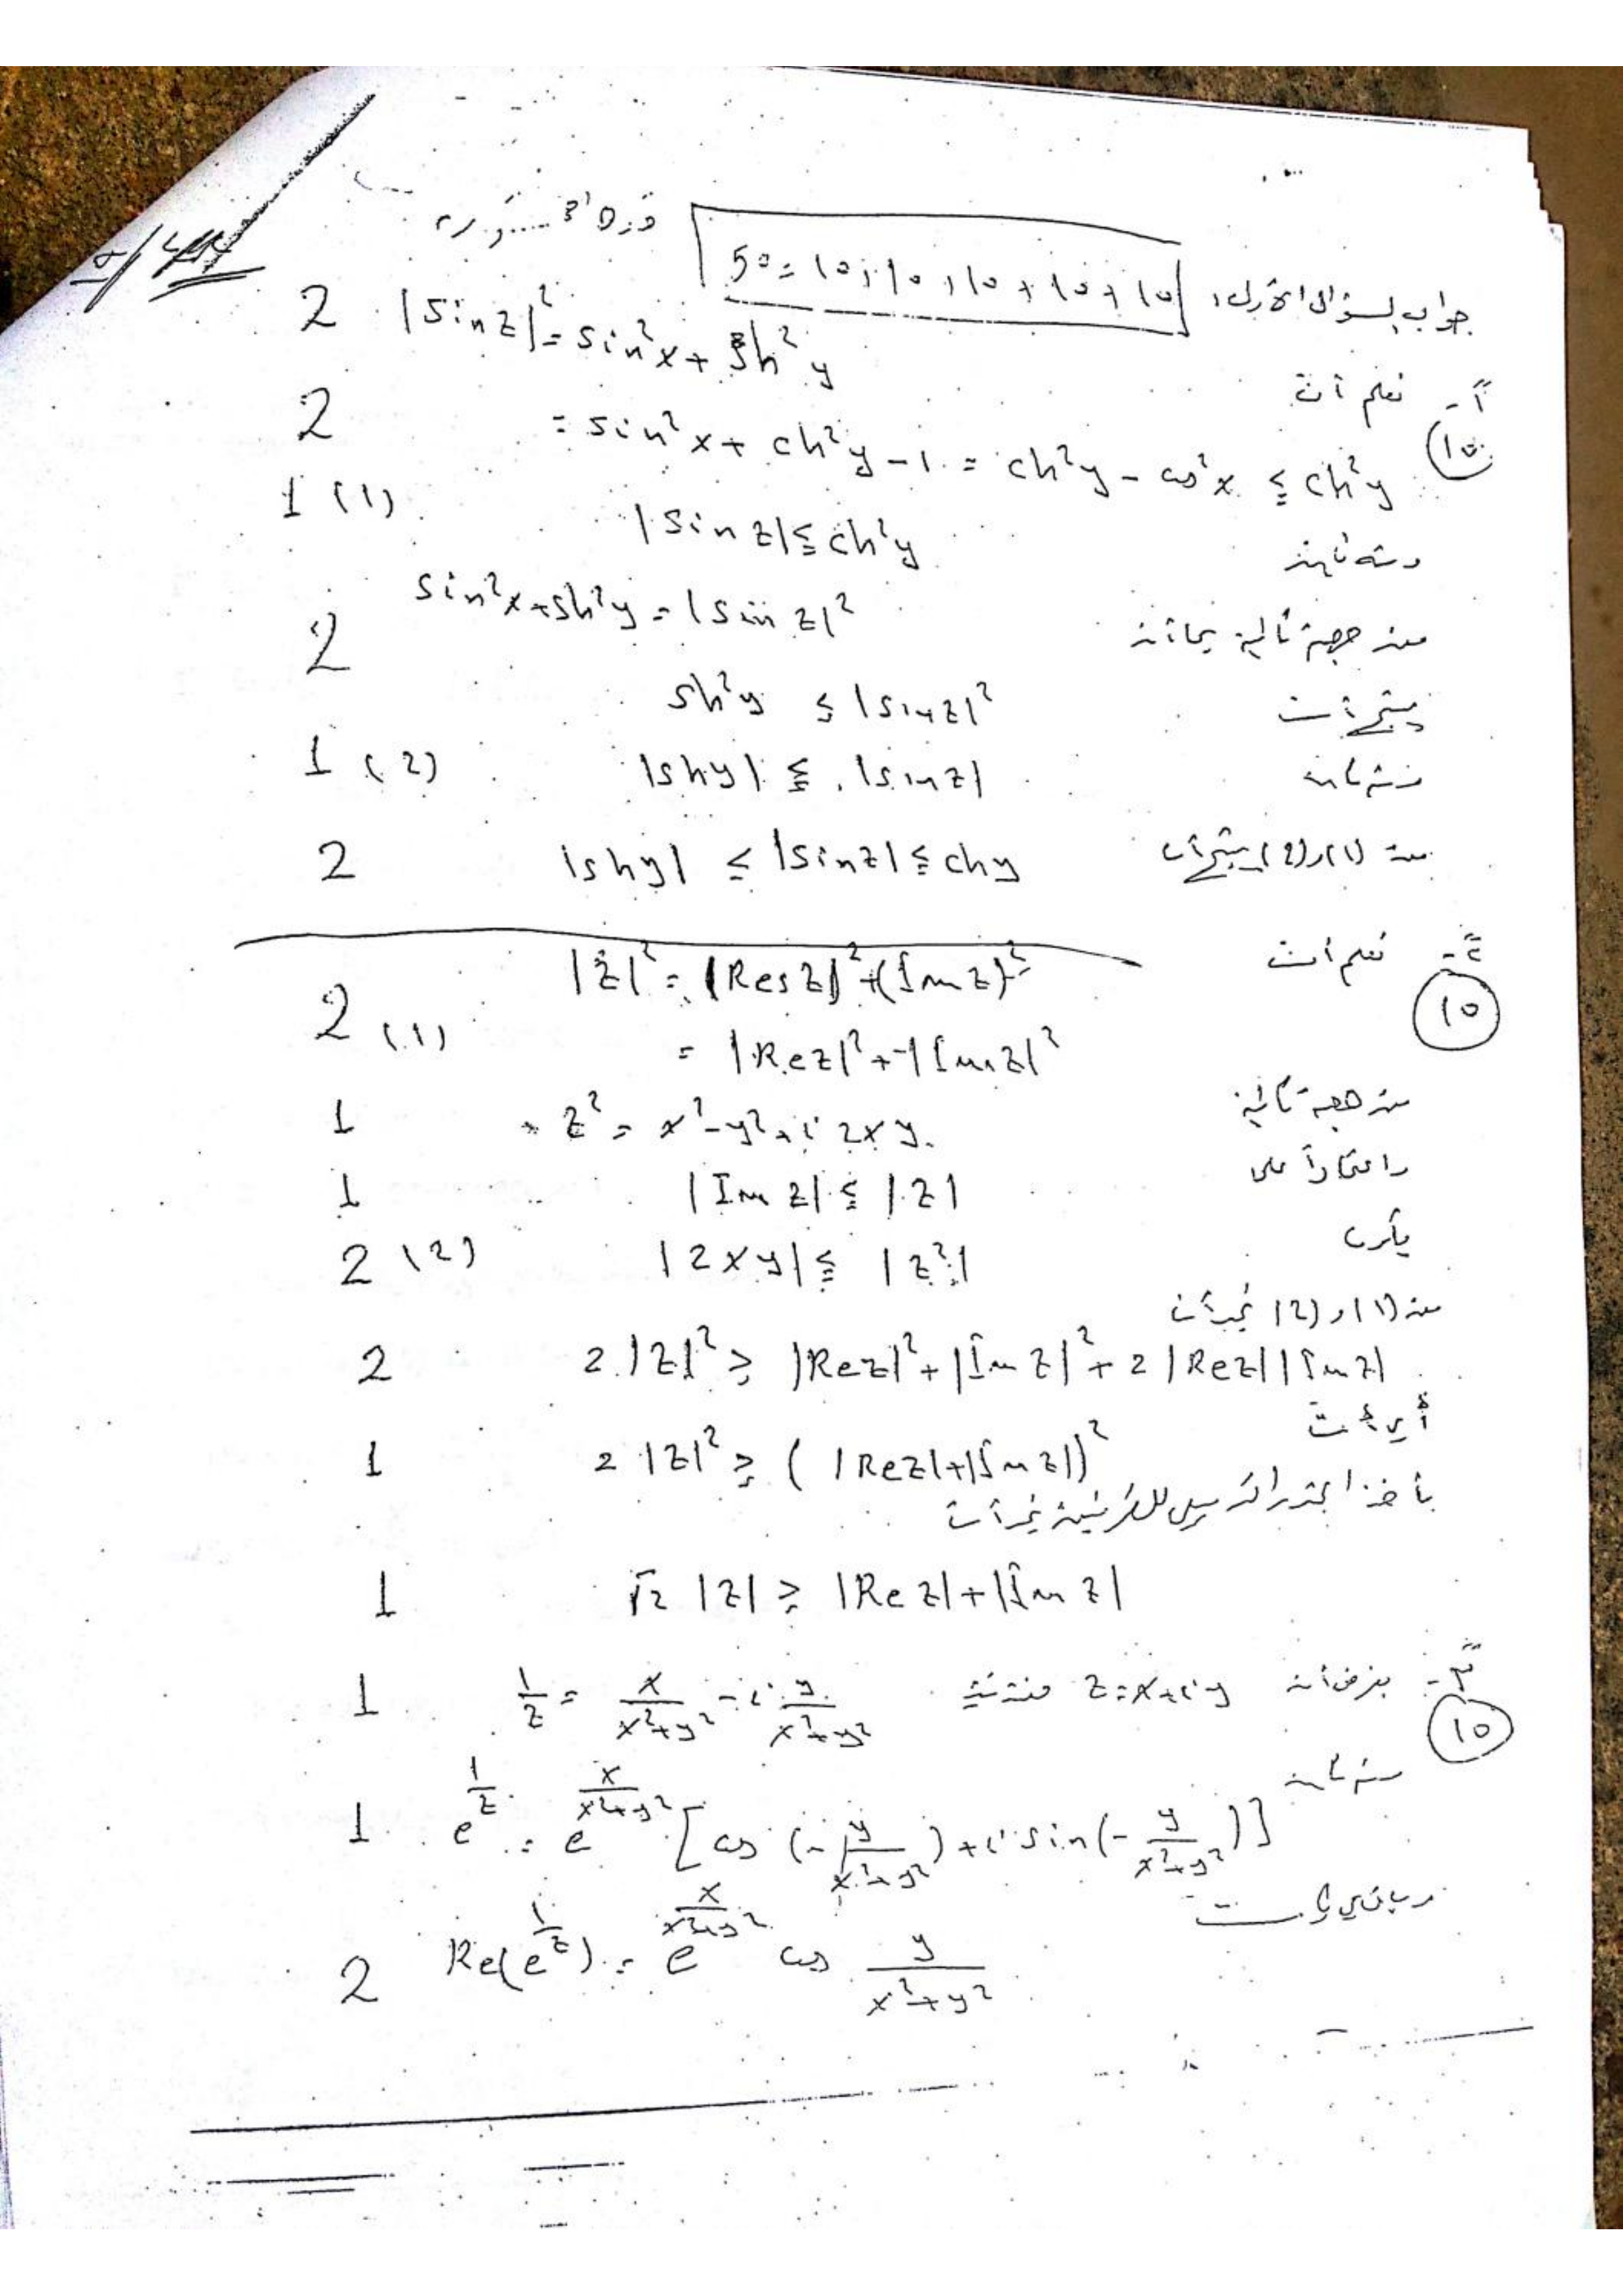 جواب السؤال الأول: 50=10+10+10+10+10
1- نعلم أن |Sin z|² = sin²x + sh²y 2
(10) = sin²x + ch²y - 1 = ch²y - cos²x ≤ ch²y 2
ومنه فإن |Sin z| ≤ ch²y (1) 1
من جهة ثانية بما أن sin²x + sh²y = |sin z|² 2
ينتج أن sh²y ≤ |sin z|²
ومنه فإن |shy| ≤ |sin z| (2) 1
من (1) و (2) ينتج أن |shy| ≤ |sin z| ≤ chy 2
2- نعلم أن |z|² = |Res z|² + (Im z)²
(10) = |Re z|² + |Im z|² (1) 2
من جهة ثانية z² = x² - y² + i 2xy. 1
واعتماداً على |Im z| ≤ |z| 1
يكون |2xy| ≤ |z²| (2) 2
من (1) و (2) نجد أن
2|z|² ≥ |Re z|² + |Im z|² + 2|Re z||Im z| 2
أي أن
2|z|² ≥ (|Re z| + |Im z|)² 1
بأخذ الجذر التربيعي للطرفين نجد أن
√2 |z| ≥ |Re z| + |Im z| 1
3- بفرض أن z = x + iy عندئذ 1/z = x/(x²+y²) - i y/(x²+y²) 1
(10)
ومنه فإن e^(1/z) = e^(x/(x²+y²)) [cos(-y/(x²+y²)) + i sin(-y/(x²+y²))] 1
وبالتالي
Re(e^(1/z)) = e^(x/(x²+y²)) cos y/(x²+y²) 2